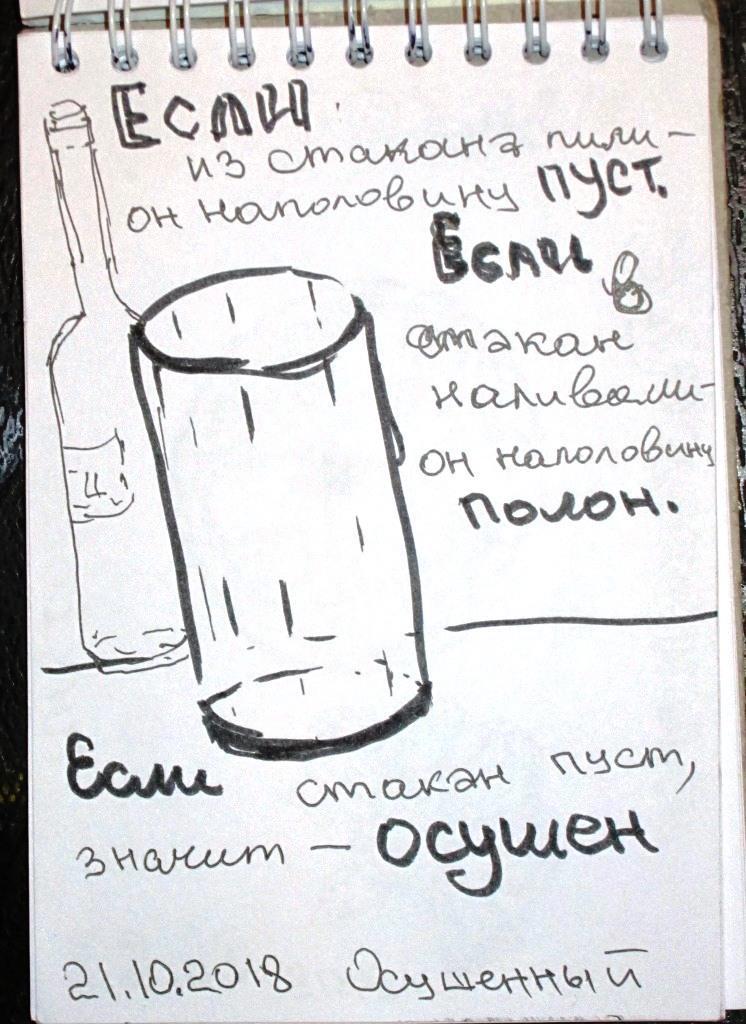 Если
из стакана пили -
он наполовину пуст.
Если в
стакан
наливали -
он наполовину
полон.
Ц
Если стакан пуст,
значит - осушен
21.10.2018 Осушенный